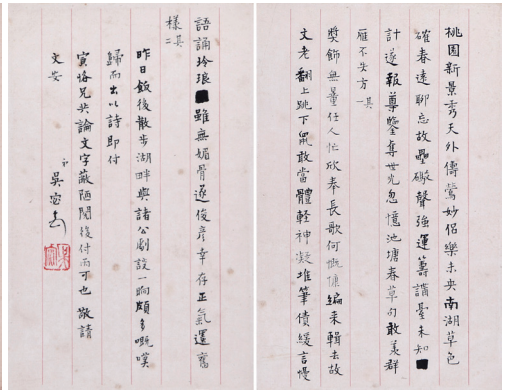 桃園新景秀天外儔鶯妙侶樂未央南湖草色
確春遠聊忘故壘礮聲強運籌講臺未知
計遂報尊鑒奪世光忽憶池塘春草句敢羨群
雁不失方 其一
獎飾無量任人忙欣奉長歌何慨慷編來輯去故
文老翻上跳下鼠敢當體輕神凝堆筆債緩言慢
語誦玲琅雖無媚骨逐俊彥幸存正氣還舊
樣 其二
昨日飯後散步湖畔與諸公劇談一晌頗多嘅嘆
歸而出以詩即付
寅恪兄共論文字蔽陋閱後付丙可也 敬請
文安
弟 吳宓